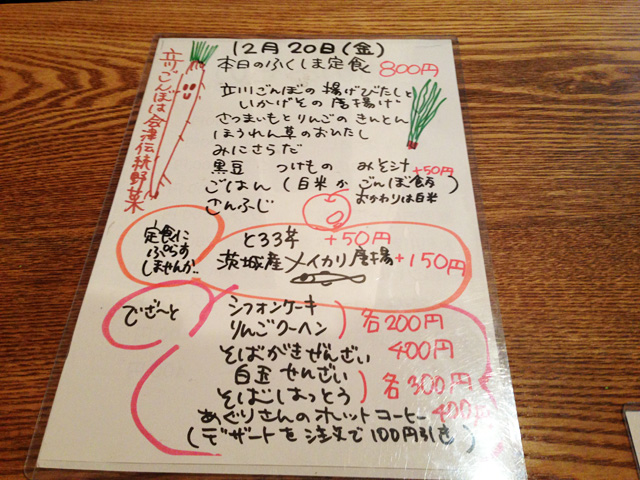 12月20日(金)
本日のふくしま定食 800円
立川ごんぼは会津伝統野菜
立川ごんぼの揚げびたしと
いかげその唐揚げ
さつまいもとりんごのきんとん
ほうれん草のおひたし
みにさらだ
黒豆 つけもの みそ汁
ごはん(白米かごんぼ飯) +50円
おかわりは白米
さんふじ
定食に
ぷらす
しませんか
とろろ芋 +50円
茨城産メイカリ唐揚 +150円
でざ〜と
シフォンケーキ
りんごクーヘン) 各200円
そばがきぜんざい 400円
白玉ぜんざい
そばはっとう) 各300円
めぐりさんのオレットコーヒー 400円
(デザートを注文で100円引き)